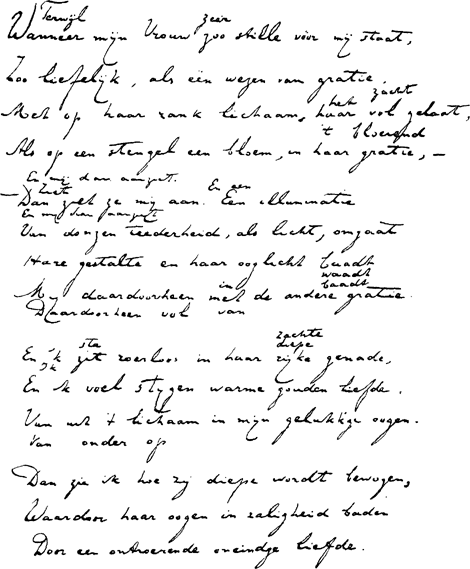 Terwijl zeer
Wanneer mijn Vrouw zoo stille vòòr mij staat,
Zoo liefelijk, als een wezen van gratie,
het zacht
Met op haar rank lichaam, haar vol gelaat,
't bloeiend
Als op een stengel een bloem, in haar gratie, —
En mij dan aanziet.
ziet En een
— Dan ziet ze mij aan. Een illuminatie
En mij dan aanziet
Van donzen teederheid, als licht, omgaat
Hare gestalte en haar ooglicht baadt
waadt
in baadt
Mij daardoorheen met de andere gratie.
Daardoorheen vol van
zachte
sta diepe
En 'k zit roerloos in haar rijke genade,
Ik
En ik voel stijgen warme gouden liefde.
Van uit 't lichaam in mijn gelukkige oogen.
Van onder op
Dan zie ik hoe zij diepe wordt bewogen,
Waardoor haar oogen in zaligheid baden
Door een ontroerende oneindge liefde.